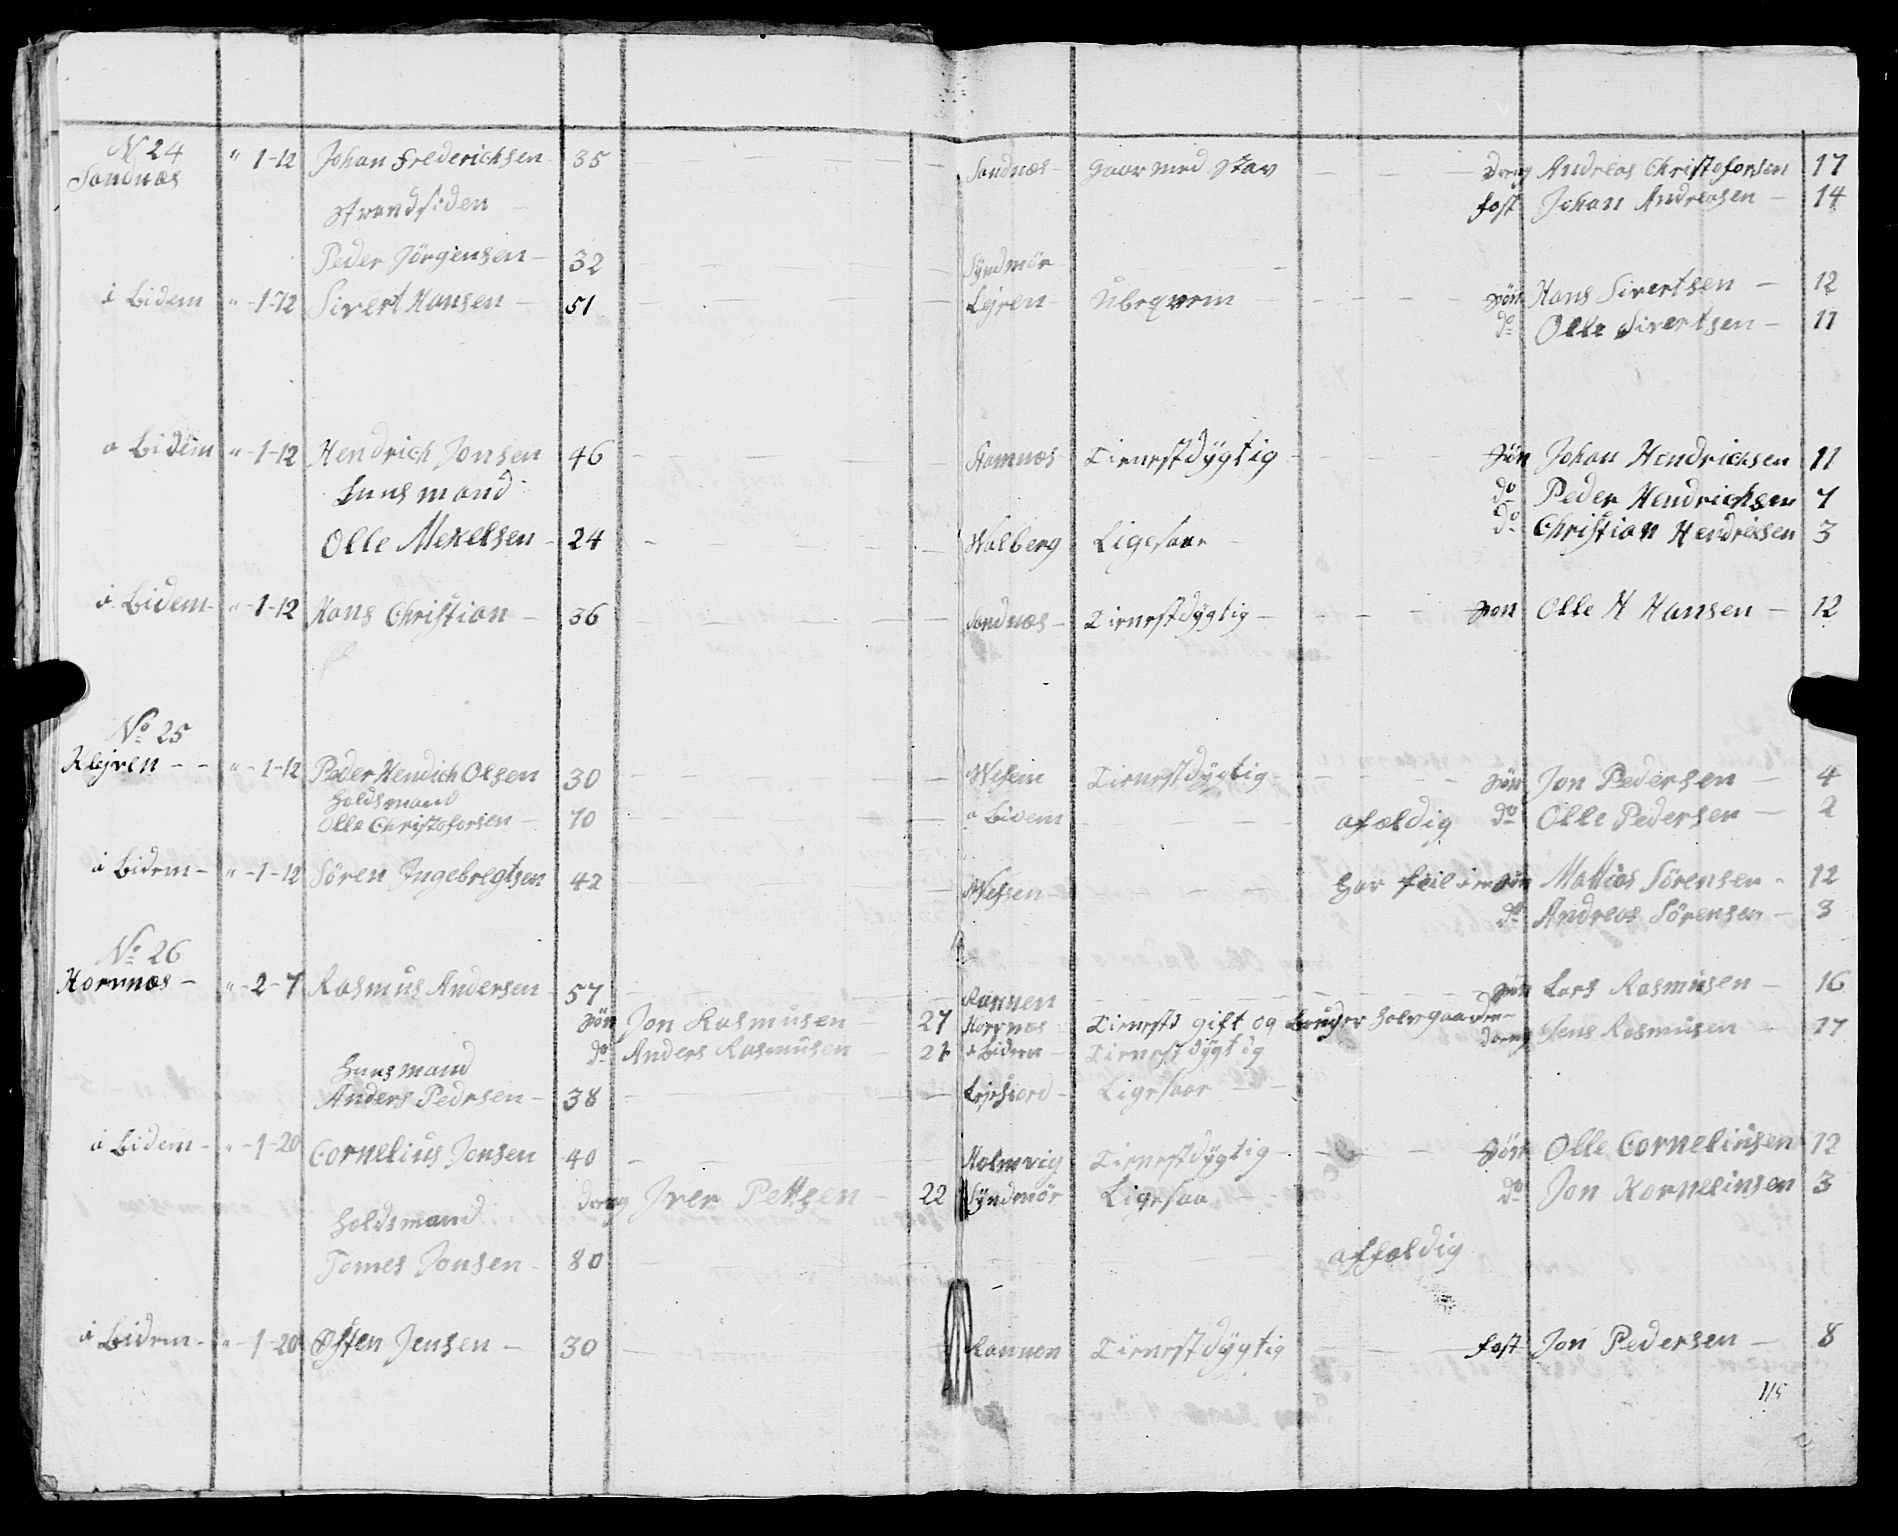 N 24 " 1-12 Johan Frederichsen 35 — Sandnæs - gaar med Stav — dreng Andreas Christofersen 17
Sandnæs
Strandsiden — fost Johan Andreasen - 14
Peder Jörgensen - 32 — Syndmör
i Bidem " - 1-12 Sivert Hansen - 51 — Lejren - Ubeqvem — Sön Hans Sivertsen - 12
do Olle Sivertsen - 11
a Bidem " - 1-12 Hendrich Jonsen 46 — Hamnæs - Tienestdygtig — Sön Johan Hendrichsen 11
Huusmand do Peder Hendrichsen 7
Olle Mekelsen - 24 — Walberg Ligesaa do Christian Hendrichsen 3
a Bidem - " - 1-12 Hans Christian - 36 — Sandnæs - Tienestdygtig - — Sön Olle H Hansen - 12
No 25
Klejven - - " - 1-12 Peder Hendich Olsen 30 — Tienestdygtig - — Sön Jon Pedersen - 4
Holdsmand
Olle Christofersen - 70 — a Bidem — afældig do Olle Pedersen - 2
a Bidem - " - 1-12 Sören Ingebregtsen 42 — har feil Sön Mattias Sörensen - 12
do Andreas Sörensen - 3
No 26
Hornnæs - " - 2-7 Rasmus Andersen 57 — Rannen — Sön Lars Rasmusen - 16
Sön Jon Rasmusen - 27 Hornnæs Tienestd gift og bruger halvgaarden - dreng Jens Rasmusen - 17
do Anders Rasmusen - 21 a Bidem - Tienestdygtig
Huusmand
Anders Pedrsen - 38 — Ligesaa -
a Bidem - " - 1-20 Cornelius Jonsen 40 — Holmvig Tienestdygtig - — Sön Olle Cornelinsen 12
dreng Iver Pettsen - 22 Syndmör Ligesaa - - do Jon Kornelinsen 3
Holdsmand
Tomes Jonsen - 80 — affældig
a Bidem - " - 1-20 Østen Jensen - 30 — Rannen Tienestdygtig — fost Jon Pedersen - 8
115